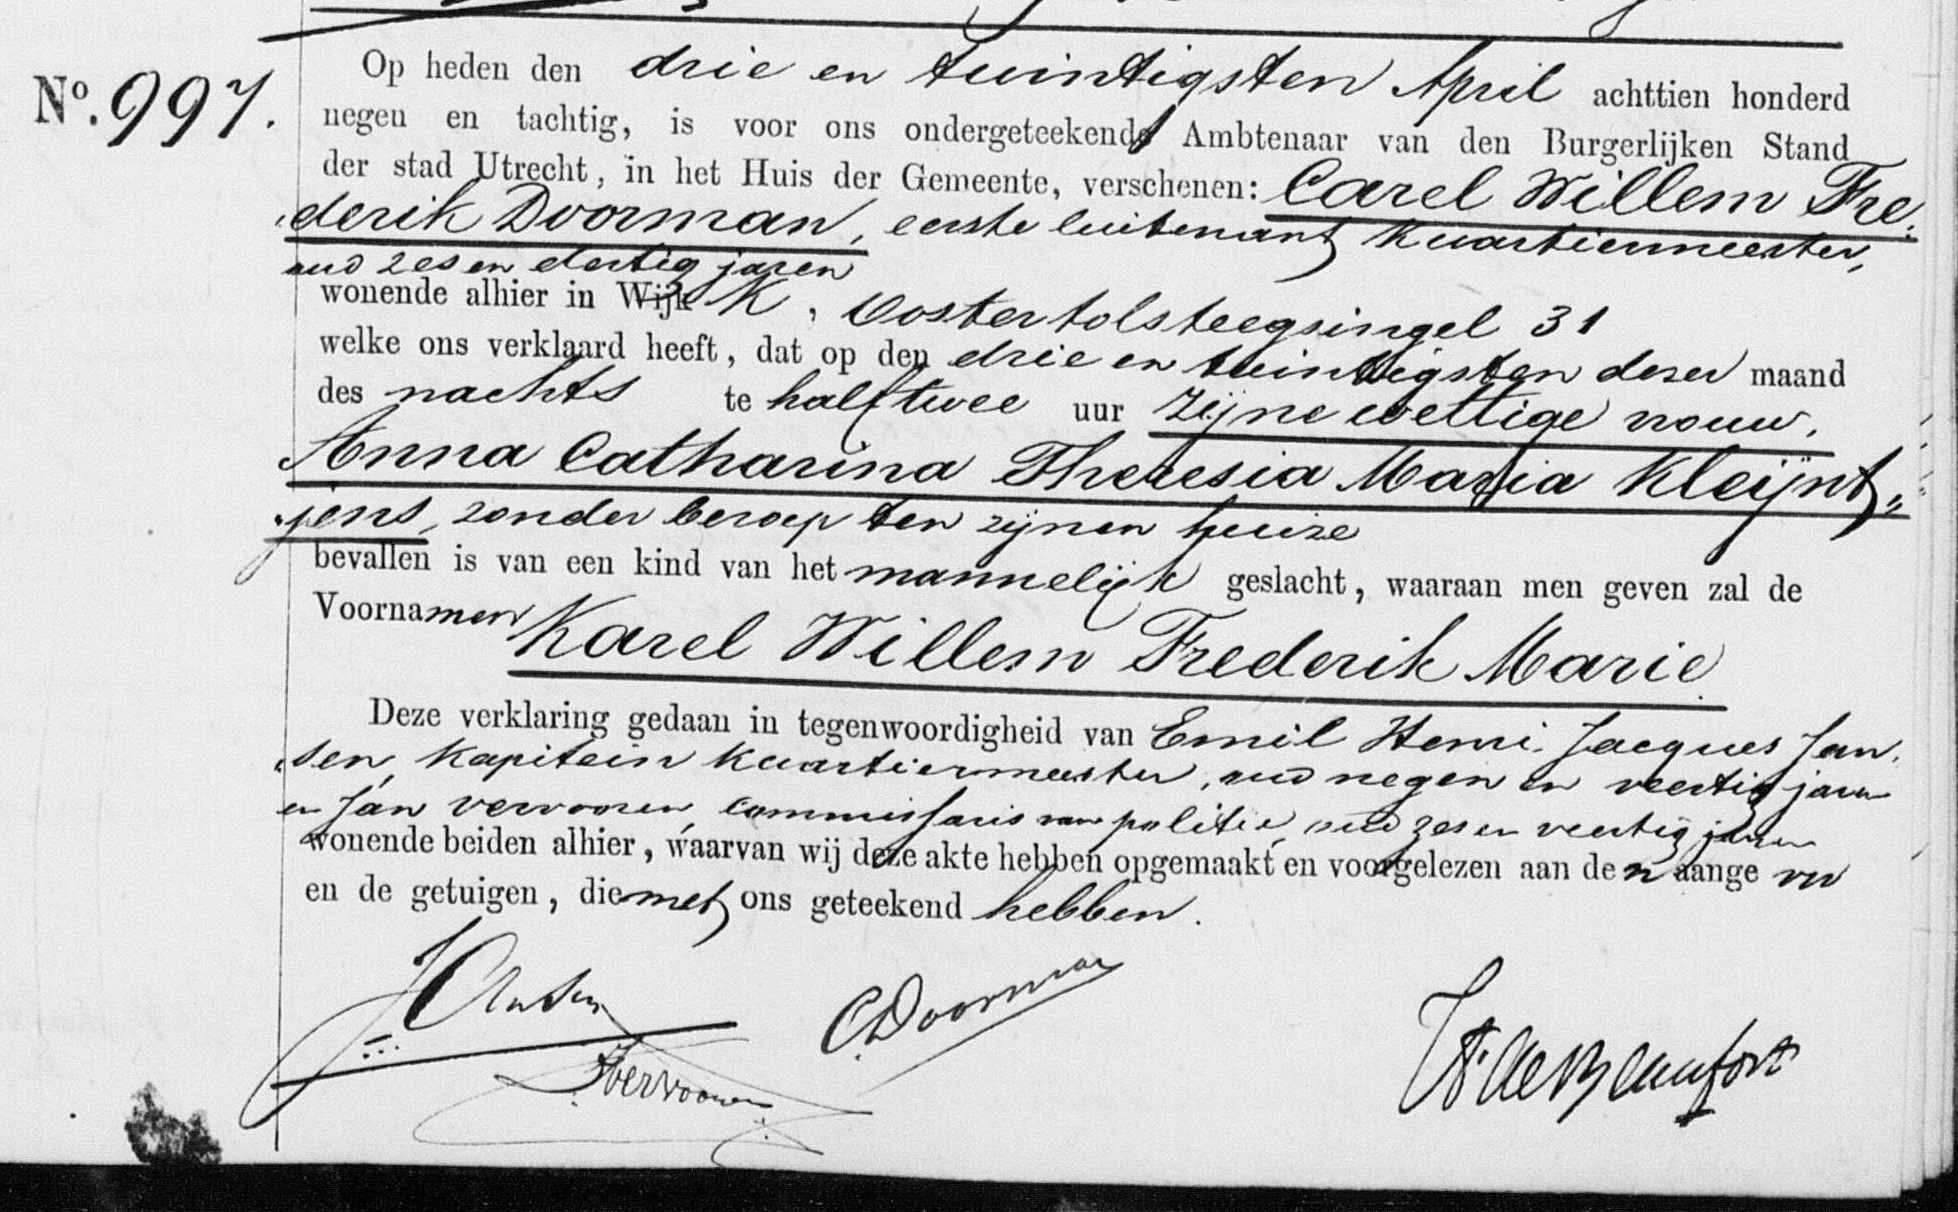 Nº. 997.
Op heden den drie en twintigsten April achttien honderd
negen en tachtig, is voor ons ondergeteekende Ambtenaar van den Burgerlijken Stand
der stad Utrecht, in het Huis der Gemeente, verschenen: Carel Willem Fre-
derik Doorman, eerste luitenant kwartiermeester,
oud zes en dertig jaren
wonende alhier in Wijk K, Oostertolsteegsingel 31
welke ons verklaard heeft, dat op den drie en twintigsten dezer maand
des nachts te half twee uur zijne wettige vrouw,
Anna Catharina Theresia Maria Kleijnt„
„jens, zonder beroep ten zijnen huize
bevallen is van een kind van het mannelijk geslacht, waaraan men geven zal de
Voornamen Karel Willem Frederik Marie
Deze verklaring gedaan in tegenwoordigheid van Emil Henri Jacques Jan„
„sen, kapitein kwartiermeester, oud negen en veertig jaren
en Jan Vervooren, commissaris van politie, oud zes en veertig jaren
wonende beiden alhier, waarvan wij deze akte hebben opgemaakt en voorgelezen aan den aangever
en de getuigen, die met ons geteekend hebben.
Jansen
CDoorman
JVervooren
de Beaufort